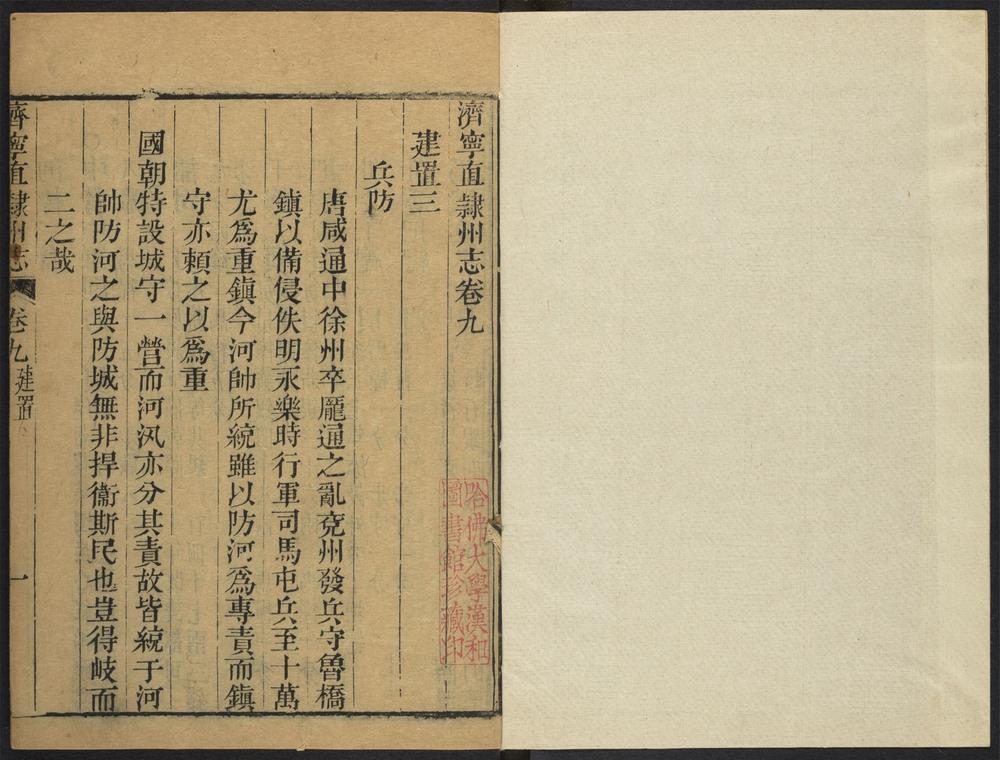 濟寧直隸州志卷九
建置三
兵防
唐咸通中徐州卒龎通之亂兗州發兵守魯橋
鎮以備侵佚明永樂時行軍司馬屯兵至十萬
尤爲重鎮今河帥所統雖以防河爲專責而鎮
守亦頼之以爲重
國朝特設城守一營而河汛亦分其責故皆統于河
帥防河之與防城無非捍衞斯民也豈得岐而
二之哉
濟寧直隸州志 卷九 建置 一
哈佛大學漢和
圖書館珍藏印